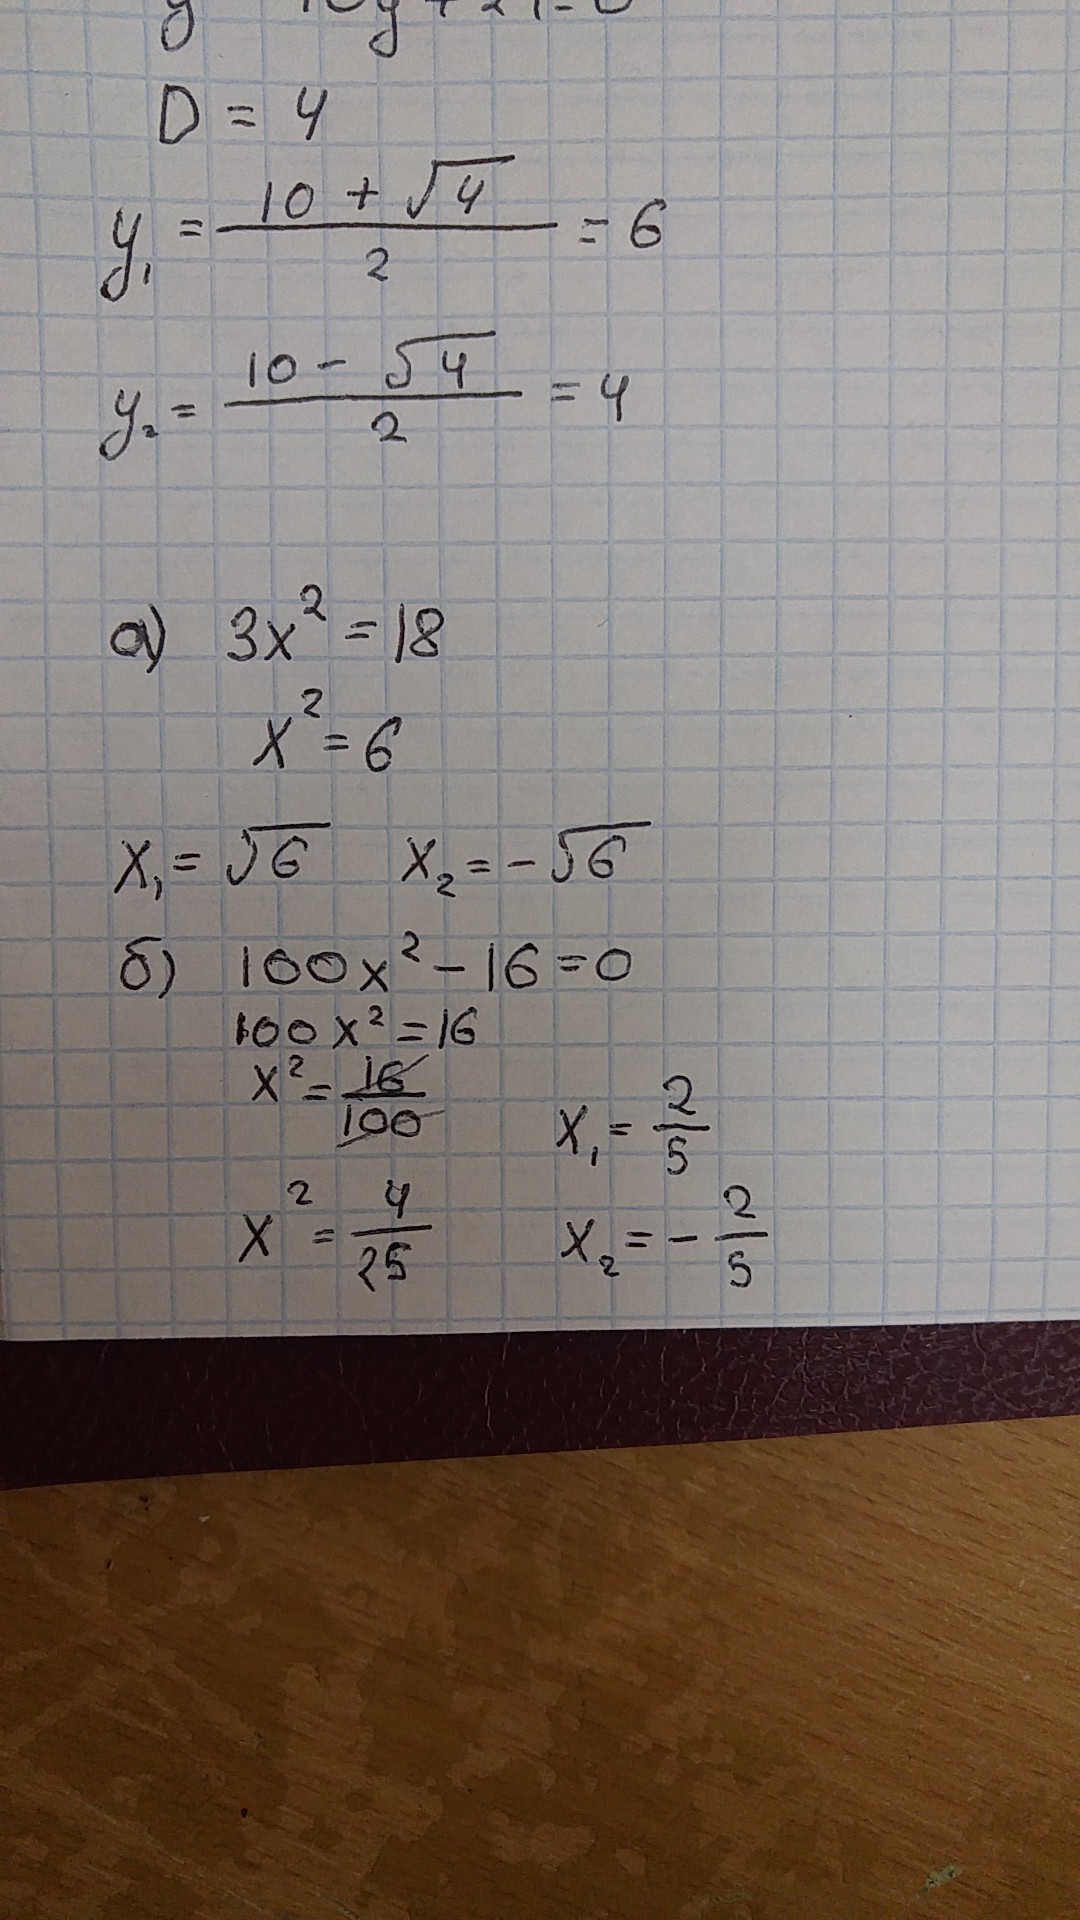 D = 4
y₁ = (10 + √4)/2 = 6
y₂ = (10 - √4)/2 = 4
а) 3x² = 18
x² = 6
x₁ = √6 x₂ = -√6
б) 100x² - 16 = 0
100x² = 16
x² = 16/100
x₁ = 2/5
x² = 4/25
x₂ = - 2/5